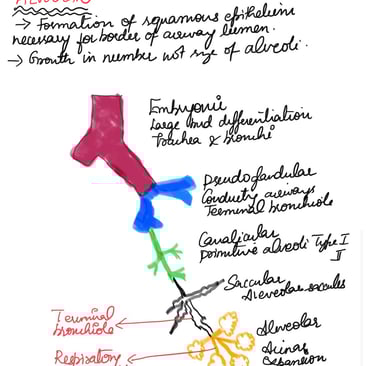 → Formation of squamous epithelium
necessary for border of airway lumen.
→ Growth in number not size of alveoli.
Embryonic
Large bud differentiation
Trachea & bronchi
Pseudoglandular
Conducting airways
Terminal bronchiole
Canalicular
Primitive alveoli Type I
II
Saccular
Alveolar saccules
Terminal
bronchiole
Alveolar
Acinar
expansion
Respiratory